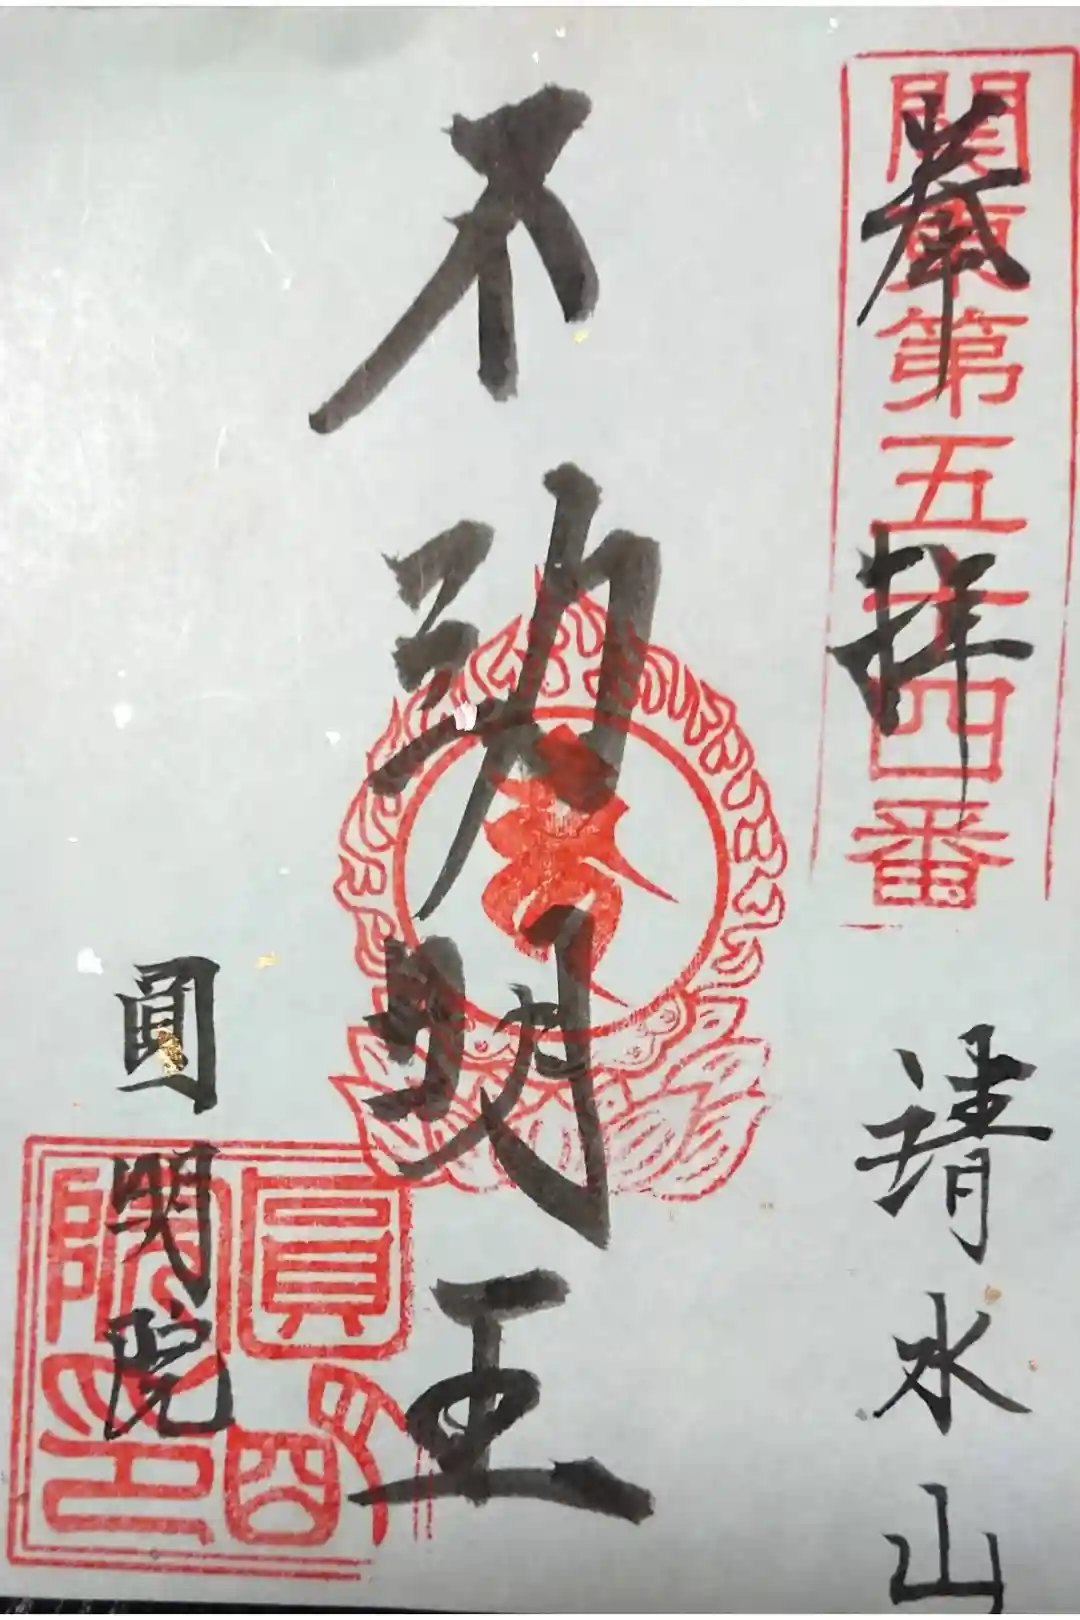 関東第五十四番
奉拝
清水山
不動明王
圓明院
圓明院印